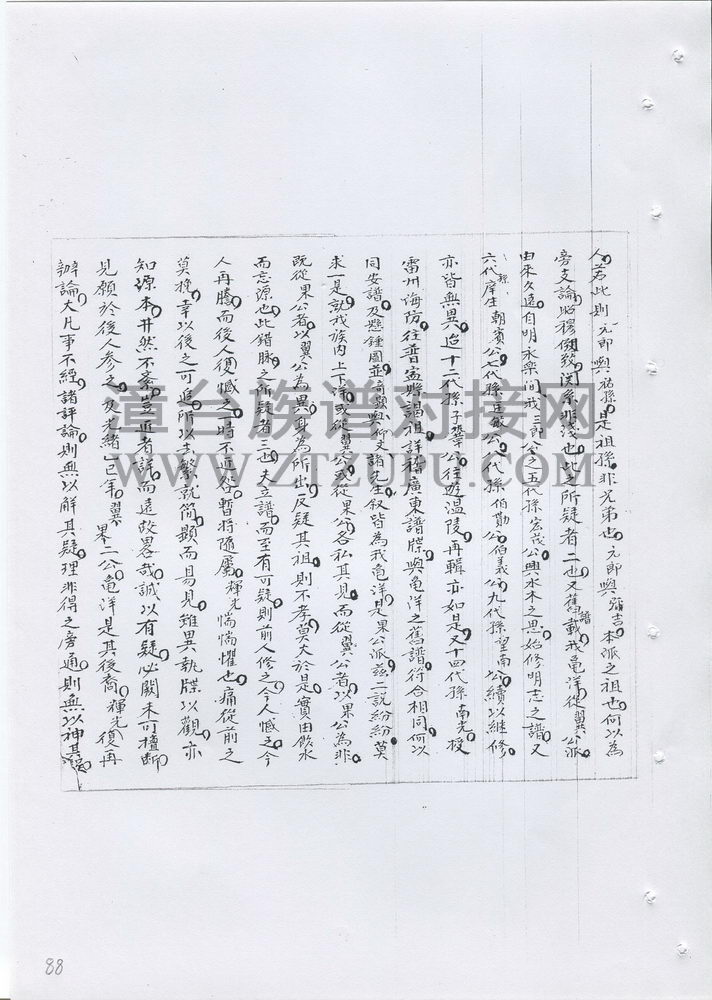 人。若此則元郎與裕孫。是祖孫。非兄弟也。元郎與蒲吉。本派之祖也。何以為
旁支論昭穆倒致。関系非浅也。此之所疑者二也。又舊譜載。我龟洋從翼公派
由來久遠。自明永樂间。我三郎公之五代孫宏茂公。興水木之思。始修明志之譜。又
六代庠生朝賓公。七代孫廷敏公。八代孫伯勤公。伯義公。九代孫望南公。續以継修。
亦皆無異。迨十二代孫子翀公。往遊温陵。再輯亦如是。又十四代孫南光。授
雷州海防。往普寧縣謁祖。詳稽廣東譜牒。與龟洋之舊譜符合相同。何以
同安譜及懸鍾圖並 與 諸先生叙。皆為我龟洋。是果公派。兹二説紛紛。莫
求一是。就我族内。上下洋。或從翼公。或從果公。各私其見。而從翼公者。以果公為非。
既從果公者。以翼公為異。身為所出。反疑其祖。則不孝莫大於是。實由飲水
而忘源也。此错脉之所疑者三也。夫立譜而至有可疑。則前人修之。今人憾之。今
人再謄。而後人復憾之。一時不近。谷暫将随屬。輝光惴惴懼也。痛從前之
莫挽。幸以後之可追。所以去繁就简。顯而易見。雖異執牒以觀。亦
知源本井然不紊。豈近者詳而遠故畧哉。誠以有疑必闕。未可擅断
見願於後人参之。及光緒己年。翼果二公。龟洋是其後裔。輝光復再
辦論。大凡事不經諸評論。則無以解其疑。理非得之旁通。則無以神其
88
潭台族谱对接网
WWW.ZTZUPU.COM